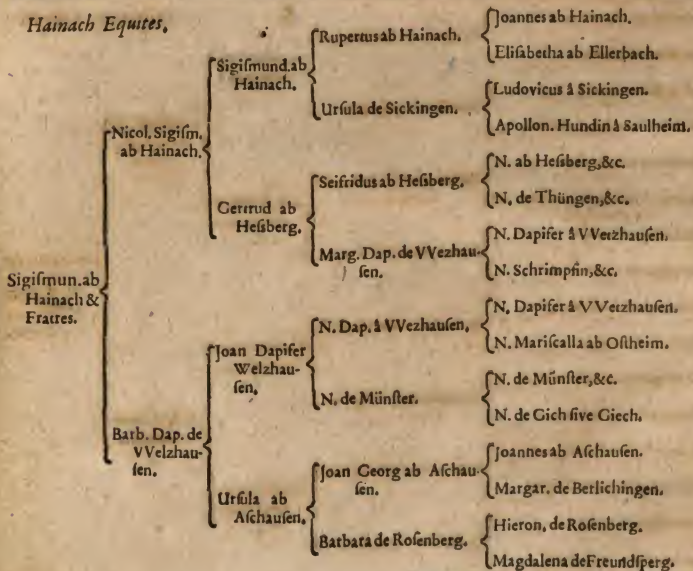 Hainach Equites.
Sigiſmun.ab
Hainach &
Fratres.
Nicol. Sigiſm.
ab Hainach.
Barb. Dap. de
VVelzhau-
ſen.
Sigiſmund.ab
Hainach.
Gertrud ab
Heßberg.
Joan Dapifer
Welzhau-
ſen.
Urſula ab
Aſchauſen.
Rupertus ab Hainach.
Urſula de Sickingen.
Seifridus ab Heßberg.
Marg. Dap. de VVezhau-
ſen.
N. Dap. à VVezhauſen.
N. de Münſter.
Joan Georg ab Aſchau-
ſen.
Barbara de Roſenberg.
Joannes ab Hainach.
Eliſabetha ab Ellerbach.
Ludovicus à Sickingen.
Apollon. Hundin à Saulheim.
N. ab Heßberg,&c.
N. de Thüngen,&c.
N. Dapifer à VVetzhauſen.
N. Schrimpfin,&c.
N. Dapifer à VVetzhauſen.
N. Mariſcalla ab Oſtheim.
N. de Münſter,&c.
N. de Gich ſive Giech.
Joannes ab Aſchauſen.
Margar. de Berlichingen.
Hieron. de Roſenberg.
Magdalena de Freundſperg.